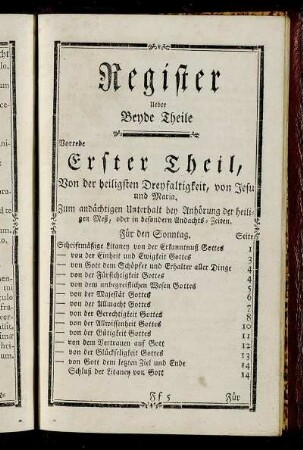 Register
Ueber
Beyde Theile
Vorrede
Erster Theil,
Von der heiligsten Dreyfaltigkeit, von Jesu
und Maria,
Zum andächtigen Unterhalt bey Anhörung der heili-
gen Meß, oder in besondern Andachts-Zeiten.
Für den Sonntag. Seite
Schriftmäßige Litaney von der Erkanntnuß Gottes 1
— von der Einheit und Ewigkeit Gottes 3
— von Gott dem Schöpfer und Erhalter aller Dinge 4
— von der Fürsichtigkeit Gottes 4
— von dem unbegreiflichen Wesen Gottes 5
— von der Majestät Gottes 6
— von der Allmacht Gottes 7
— von der Gerechtigkeit Gottes 8
— von der Allwissenheit Gottes 10
— von der Gütigkeit Gottes 11
— von dem Vertrauen auf Gott 12
— von der Glückseligkeit Gottes 13
— von Gott dem letzten Ziel und Ende 14
Schluß der Litaney von Gott 14
Ff 5 Für